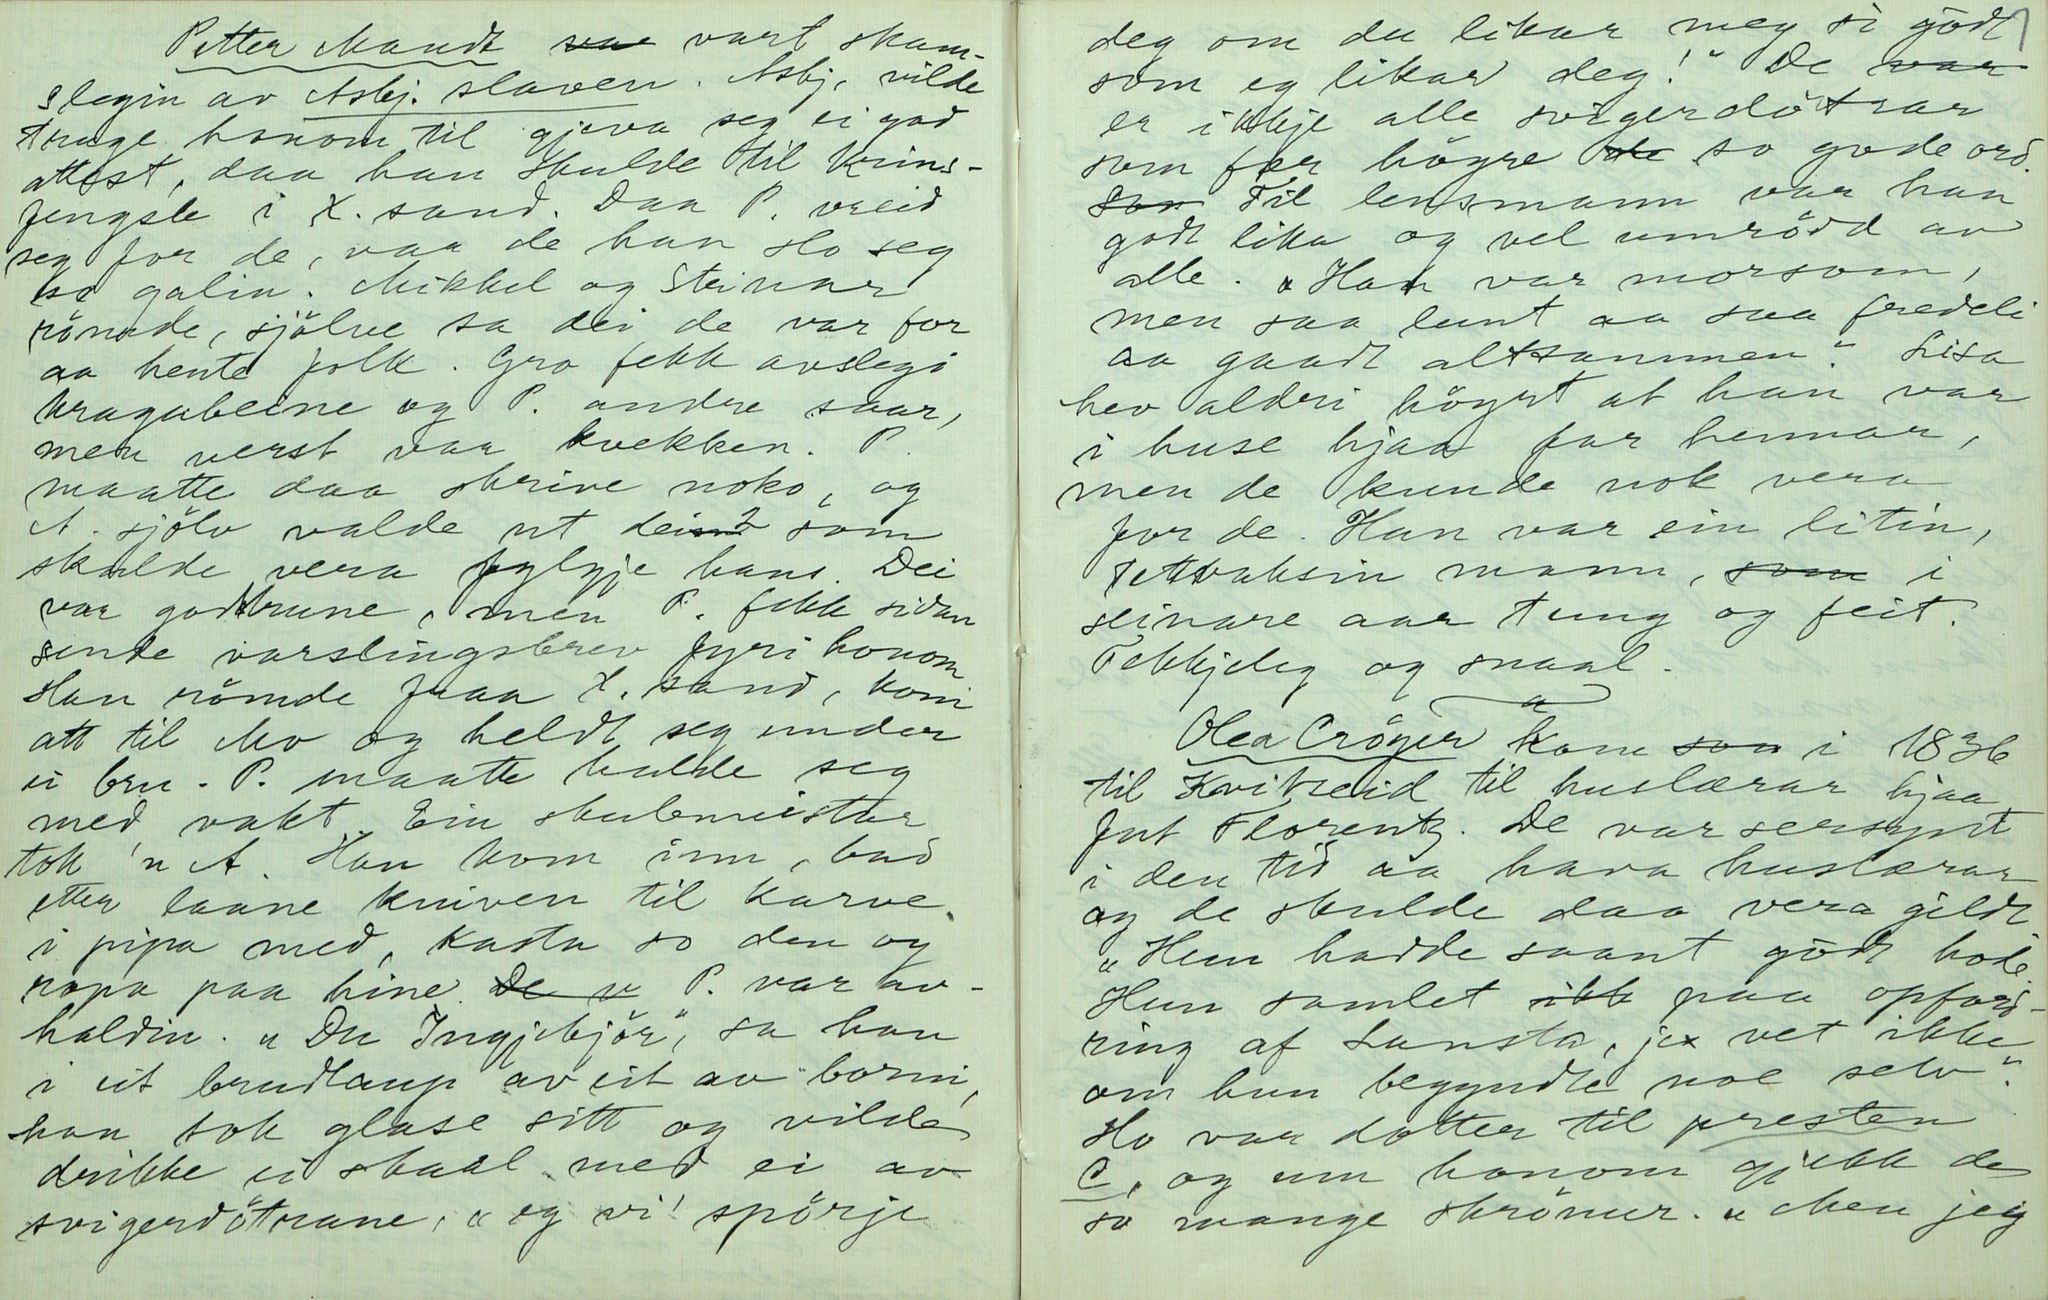 Petter Mandt var vart skam-
slegin av Asbj. slaven. Asbj. vilde
truge honom til gjeva seg ei god
attest, daa han skulde til Krins-
fengsle i X.sand. Daa P. vreid
seg for de, vaa de han slo seg
so galin. Mikkel og Steinar
römde, sjölve sa dei de var for
aa hente folk. Gro fekk avslegi
kragabeine og P. andre saar,
men verst vaa kvekken. P.
maatte daa skrive noko, og
A. sjölv valde ut dei 2 som
skulde vera fylgje hans. Dei
var godtrune, men P. fekk sidan
sende varslingsbrev fyri honom
Han römde fraa X.sand, kom
att til Mo og heldt seg under
ei bru. P. maatte halde seg
med vakt. Ein skulemeistar
tok 'n A. Han kom inn, bad
etter laane kniven til karve
i pipa med, kasta so den og
ropa paa hine. De v P. var av-
haldin. "Du Ingjebjör", sa han
i eit brudlaup av eit av borni,
han tok glase sitt og vilde
drikke ei skaal med ei av
svigerdötrane, "eg vi' spörje
deg om du likar meg si godt
som eg likar deg!" De var
er ikkje alle svigerdötrar
som fær högre de so gode ord.
son Til lensmann var han
godt lika og vel umrödd av
alle. "Han var morsom,
men saa lunt aa saa fredeli
aa gaadt altsammen." Lisa
hev aldri höyrt at han var
i huse hjaa far hennar,
men de kunde nok vera
for de. Han var ein litin,
tettvaksin mann, som i
seinare aar tung og feit.
Tekkjeleg og snaal.
Olea Cröger kom son i 1836
til Kviteseid til huslærar hjaa
fut Florentz. De var sersynt
i den tid aa hava huslærar
og de skulde daa vera gildt
"Hun hadde saant godt hode
Hun samlet ikk paa opford-
ring af Lansta, jex vet ikke
om hun begyndte noe selv".
Ho var dotter til presten
C, og um honom gjekk de
so mange skrönur. "Men jeg